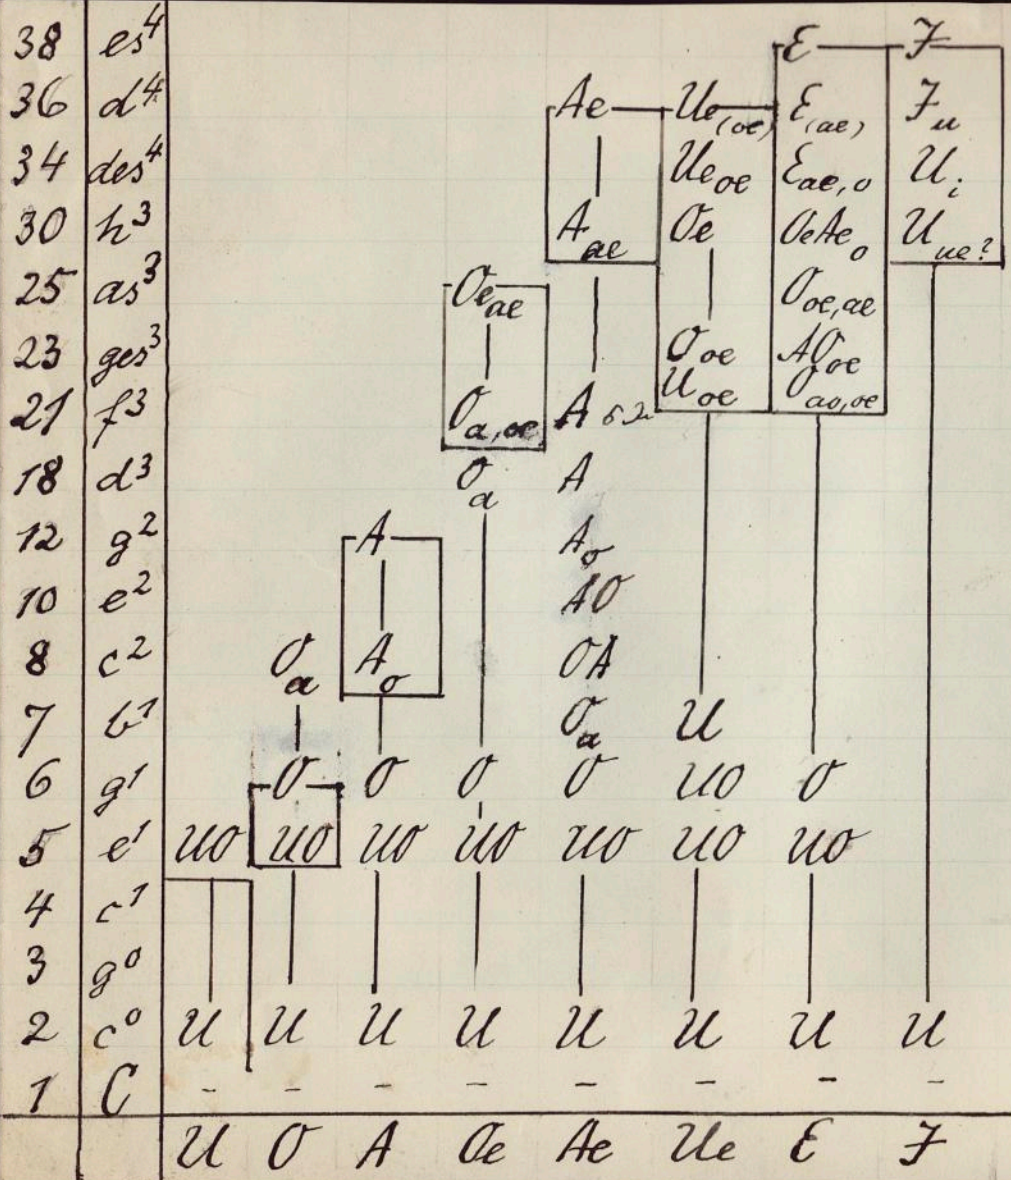 38 es⁴ E F
36 d⁴ Ae Ue(oe) E(ae) Fu
34 des⁴ Ueoe Eae,o Ui
30 h³ Aae Oe OeAeo Uue?
25 as³ Oeae Ooe,ae
23 ges³ Ooe AOoe
21 f³ Oa,oe A Uoe Oao,oe
18 d³ Oa A
12 g² A Ao
10 e² AO
8 c² Oa Ao OA
7 b¹ Oa U
6 g¹ O O O O UO O
5 e¹ UO UO UO UO UO UO UO
4 c¹
3 g⁰
2 c⁰ U U U U U U U U
1 C - - - - - - - -
U O A Oe Ae Ue E F